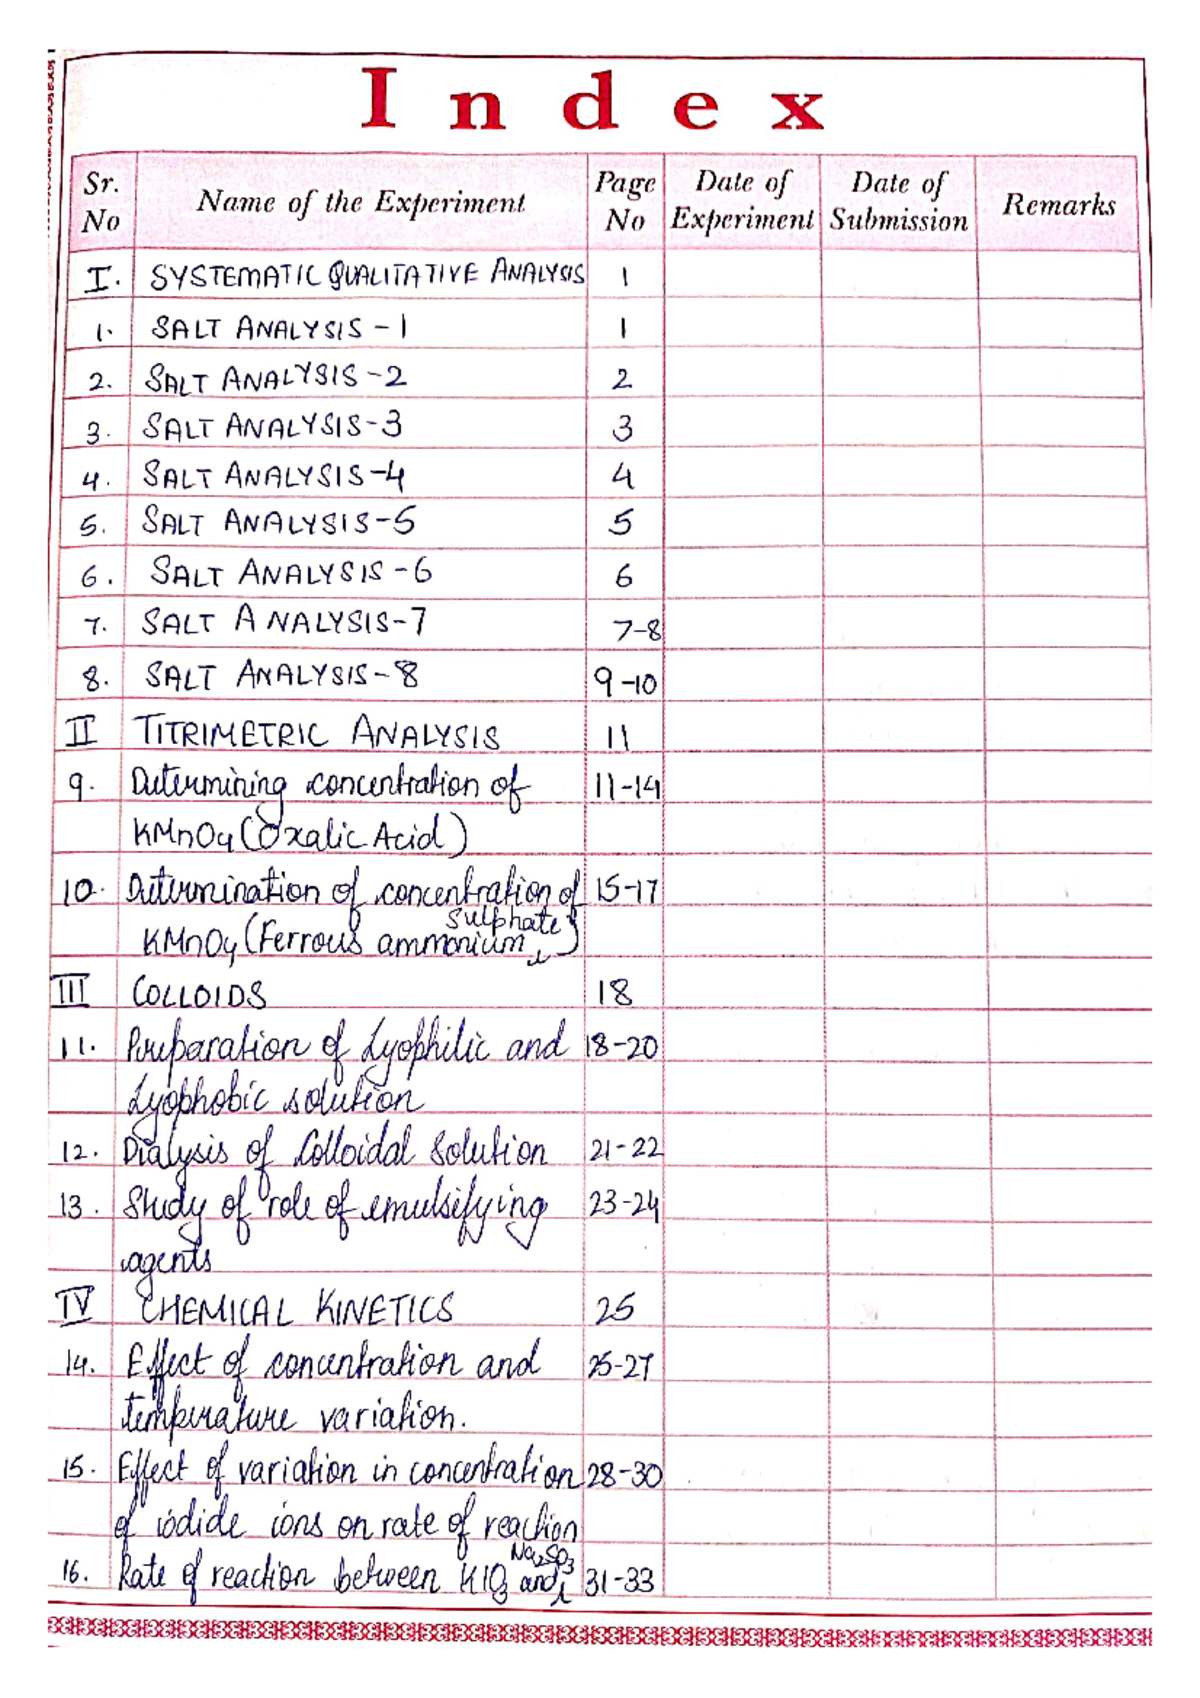 Index
Sr. No Name of the Experiment Page No Date of Experiment Date of Submission Remarks
I. SYSTEMATIC QUALITATIVE ANALYSIS 1
1. SALT ANALYSIS - 1 1
2. SALT ANALYSIS - 2 2
3. SALT ANALYSIS - 3 3
4. SALT ANALYSIS - 4 4
5. SALT ANALYSIS - 5 5
6. SALT ANALYSIS - 6 6
7. SALT ANALYSIS - 7 7-8
8. SALT ANALYSIS - 8 9-10
II TITRIMETRIC ANALYSIS 11
9. Determining concentration of 11-14
KMnO4 (Oxalic Acid)
10. Determination of concentration of 15-17
KMnO4 (Ferrous ammonium sulphate)
III COLLOIDS 18
11. Preparation of Lyophilic and 18-20
Lyophobic solution
12. Dialysis of Colloidal Solution 21-22
13. Study of role of emulsifying 23-24
agents
IV CHEMICAL KINETICS 25
14. Effect of concentration and 25-27
temperature variation.
15. Effect of variation in concentration 28-30
of iodide ions on rate of reaction
16. Rate of reaction between KIO3 and Na2SO3 31-33